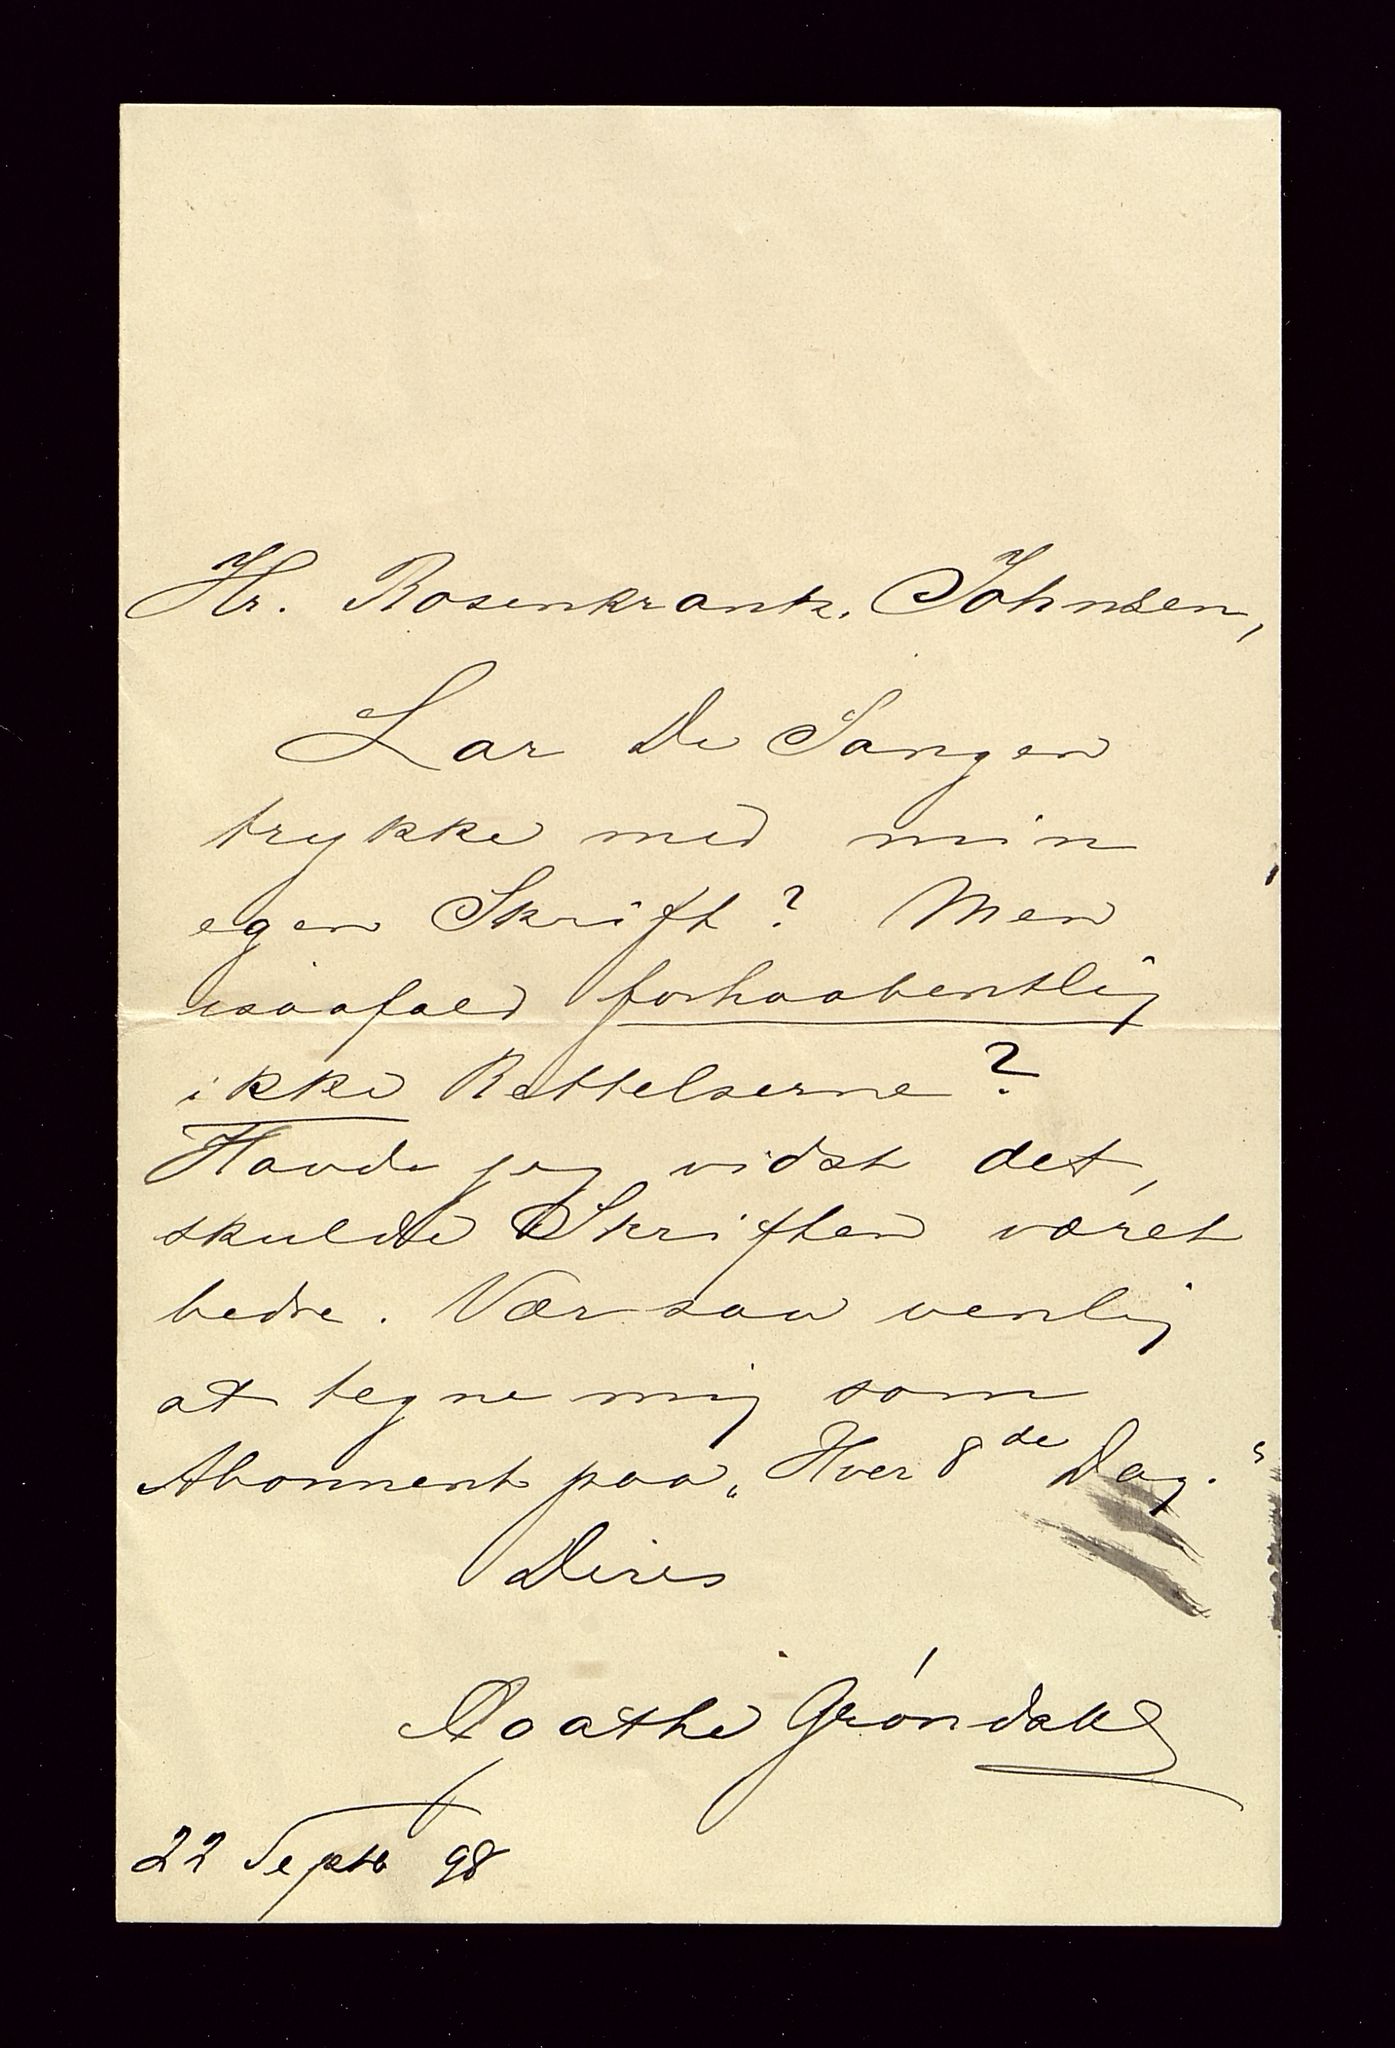 Hr. Rosenkrantz. Johnsen,
Lar De Sangen
trykke med min
egen Skrift? Men
isaafald forhaabentlig
ikke Rettelserne?
Havde jeg vidst det,
skulde Skriften været
bedre. Vær saa venlig
at tegne mig som
Abonnent paa „Hver 8de Dag."
Deres
Agathe Grøndahl
22 Septb 98